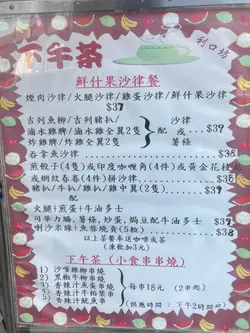 下午茶
利口坊
鮮什果沙律餐
煙肉沙律/火腿沙律/雞蛋沙律/鮮什果沙律
$37
吉列魚柳/吉列豬扒
滷水雞脾/滷水雞全翼2隻
炸雞脾/炸雞全翼2隻
配
沙律
或
薯條
$39
吞拿魚沙律
$38
煎餃子(4隻)或印度咖喱角(4件)或黃金花枝
或網紋春卷(4件)拼沙律
$39
豬扒/牛扒/雞扒/雞中翼(2隻)
$39
配
火腿/煎蛋+牛油多士
司華力腸、薯條、炒蛋、焗豆配牛油多士
$39
喇沙米線/魚蓉燒賣(5粒)
$38
以上茶餐奉送咖啡或茶
(凍飲加3元)
下午茶(小食串串燒)
1) 沙嗲雞柳串燒
2) 黑椒牛柳串燒
3) 香辣汁魚蛋串燒
4) 香辣汁牛柏葉串
5) 香辣汁魷魚串
每串18元(2串起)
(供應時間:下午2時開始)